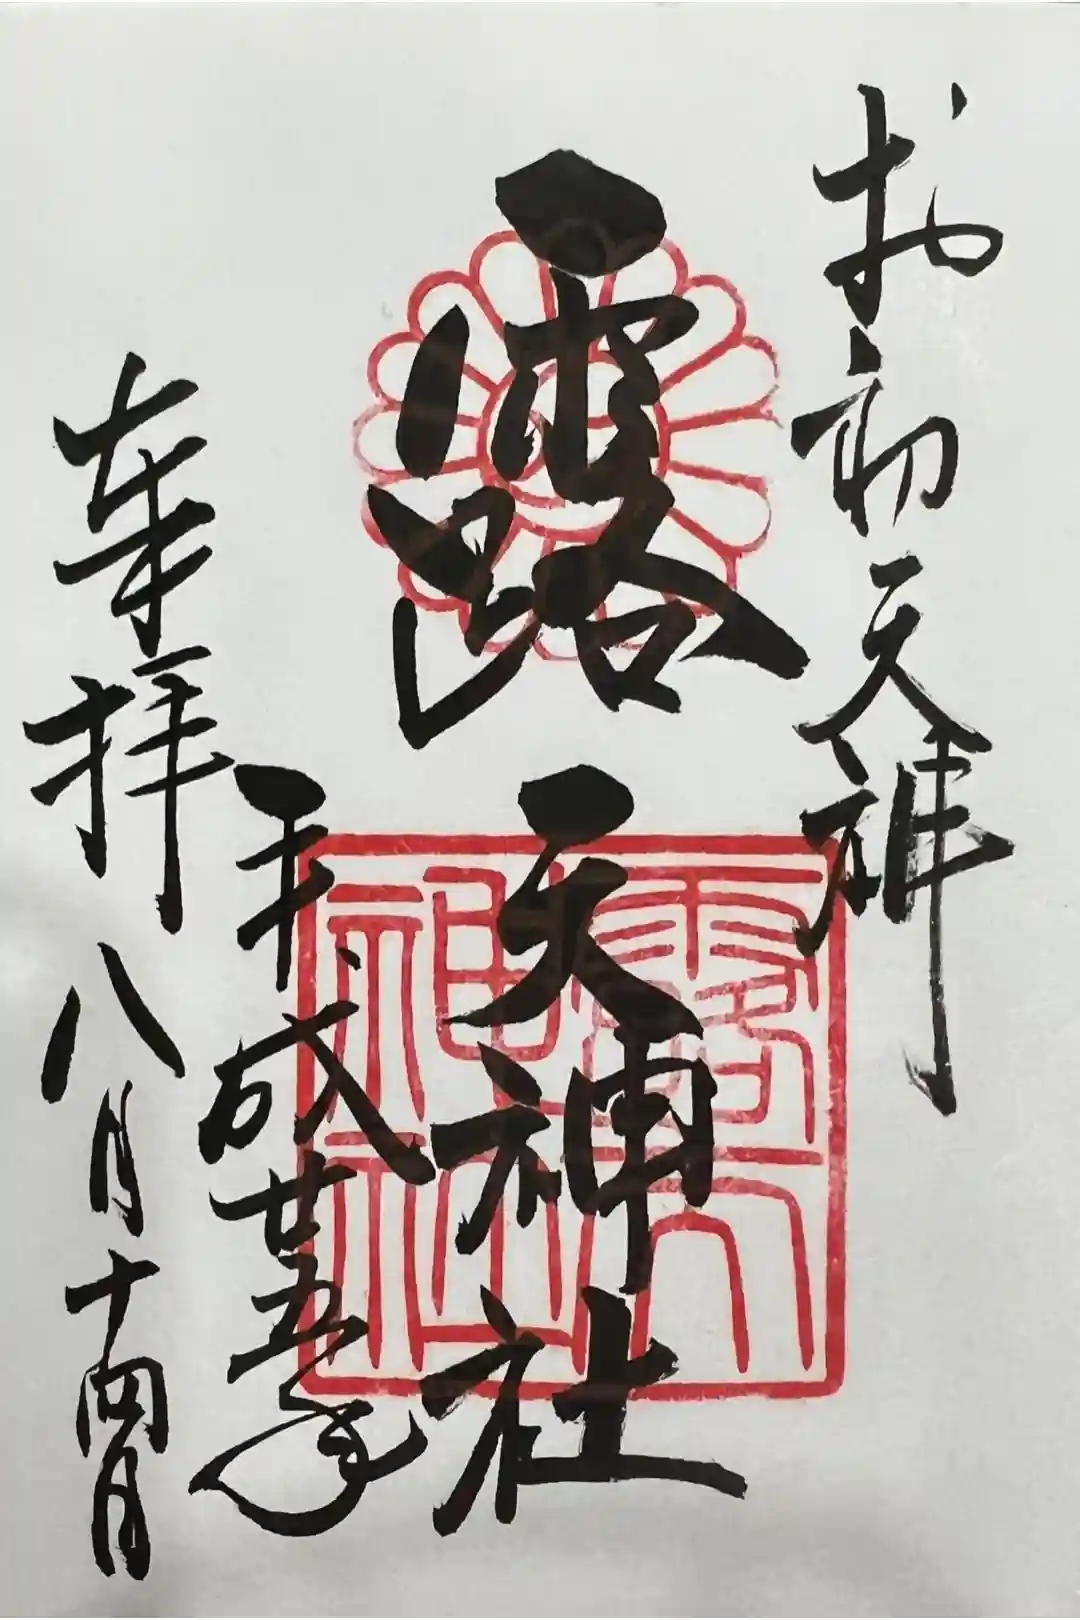 お初天神
露天神社
平成廿五年
奉拝 八月十四日
露天神社